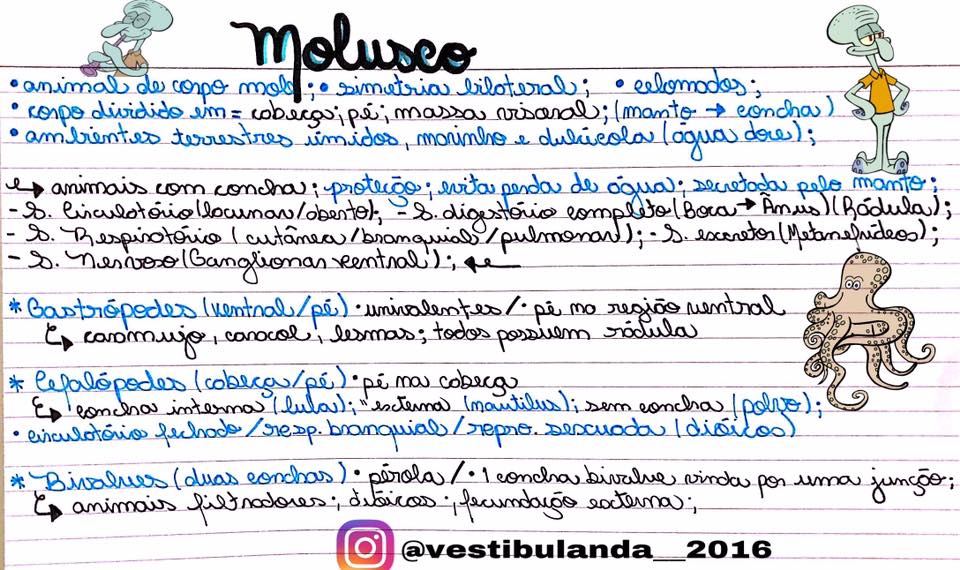 Molusco
• animal de corpo mole; • simetria bilateral; • celomados;
• corpo dividido em = cabeça; pé; massa visceral; (manto → concha)
• ambientes terrestres úmidos, marinho e dulcícola (água doce);
↳ animais com concha; proteção; evita perda de água; secretada pelo manto;
- S. Circulatório (lacunar/aberto); - S. digestório completo (Boca → Ânus) (Rádula);
- S. Respiratório (cutânea/branquial/pulmonar); - S. excretor (Metanefrídeos);
- S. Nervoso (Ganglionar ventral); ←
* Gastrópodes (ventral/pé) • univalentes / • pé na região ventral
↳ caramujo, caracol, lesmas; todos possuem rádula
* Cefalópodes (cabeça/pé) • pé na cabeça
↳ concha interna (lula); "externa (nautilus); sem concha (polvo);
• circulatório fechado / resp. branquial / repro. sexuada (dióicos)
* Bivalves (duas conchas) • pérola / • 1 concha bivalve vinda por uma junção;
↳ animais filtradores; dióicos; fecundação externa;
@vestibulanda__2016